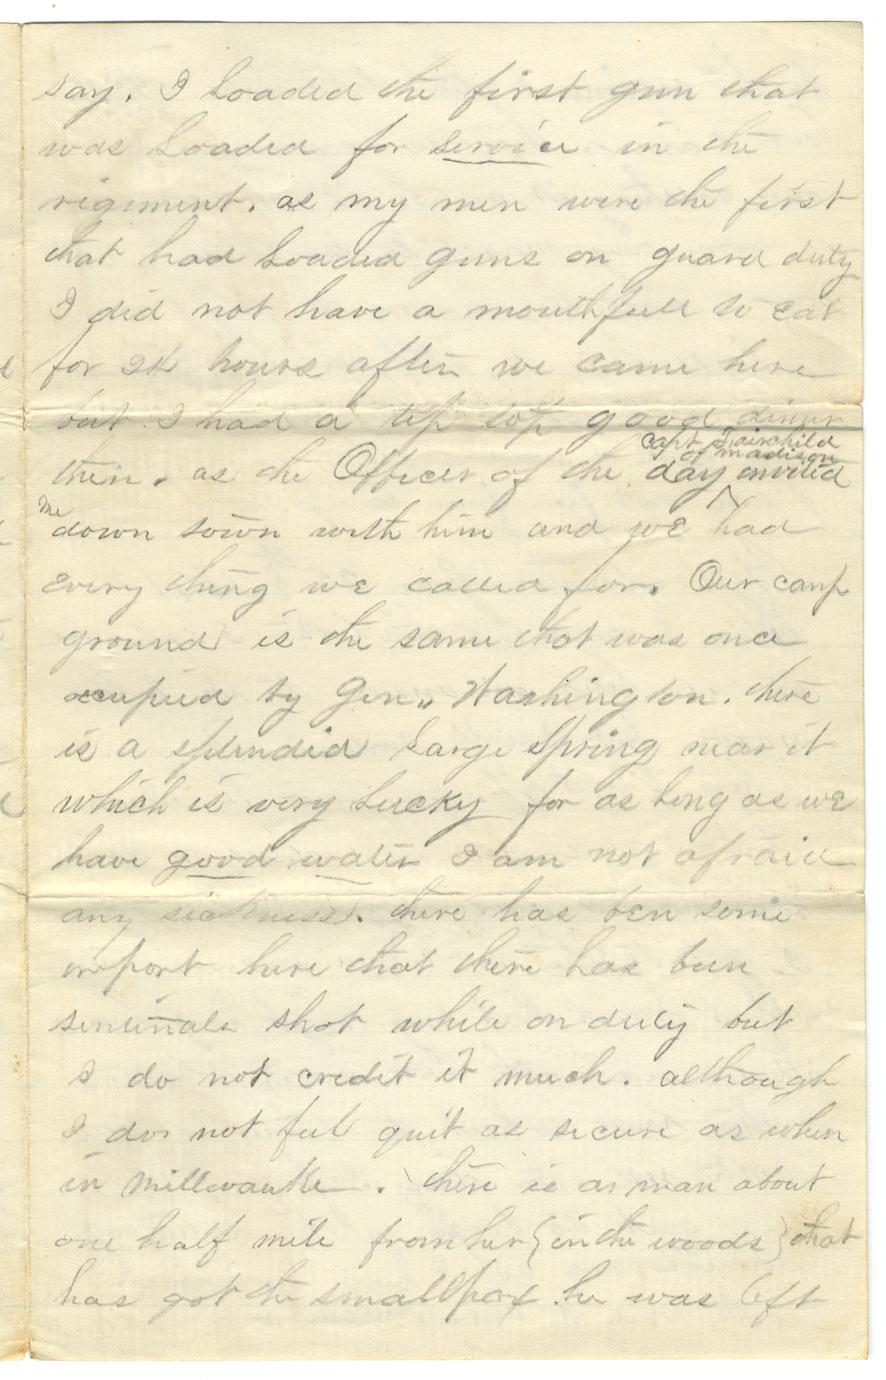 say. I loaded the first gun that
was loaded for service in the
regiment. as my men were the first
that had loaded guns on guard duty
I did not have a mouthfull to eat
for 24 hours after we came here
but I had a tip top good dinner
then. as the Officer of the day
Capt Fairchild
of madison
invited
me down town with him and we had
every thing we called for. Our camp
ground is the same that was once
occupied by Gen,, Washington. there
is a splendid large Spring near it
which is very lucky for as long as we
have good water I am not afraid
any sickness. there has ben some
report here that there has been
sentinals shot while on duty but
I do not credit it much. although
I dor not feel quit as secure as when
in Millwaukee. there is an man about
one half mile from her {in the woods} that
has got the smallpox he was left